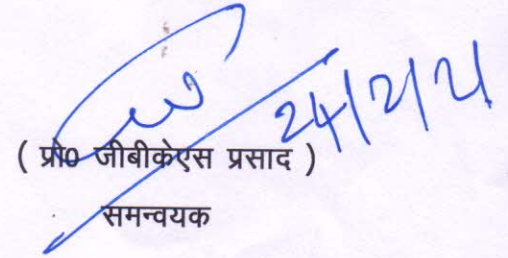 24/2/21
( प्रो0 जीबीकेएस प्रसाद )
समन्वयक